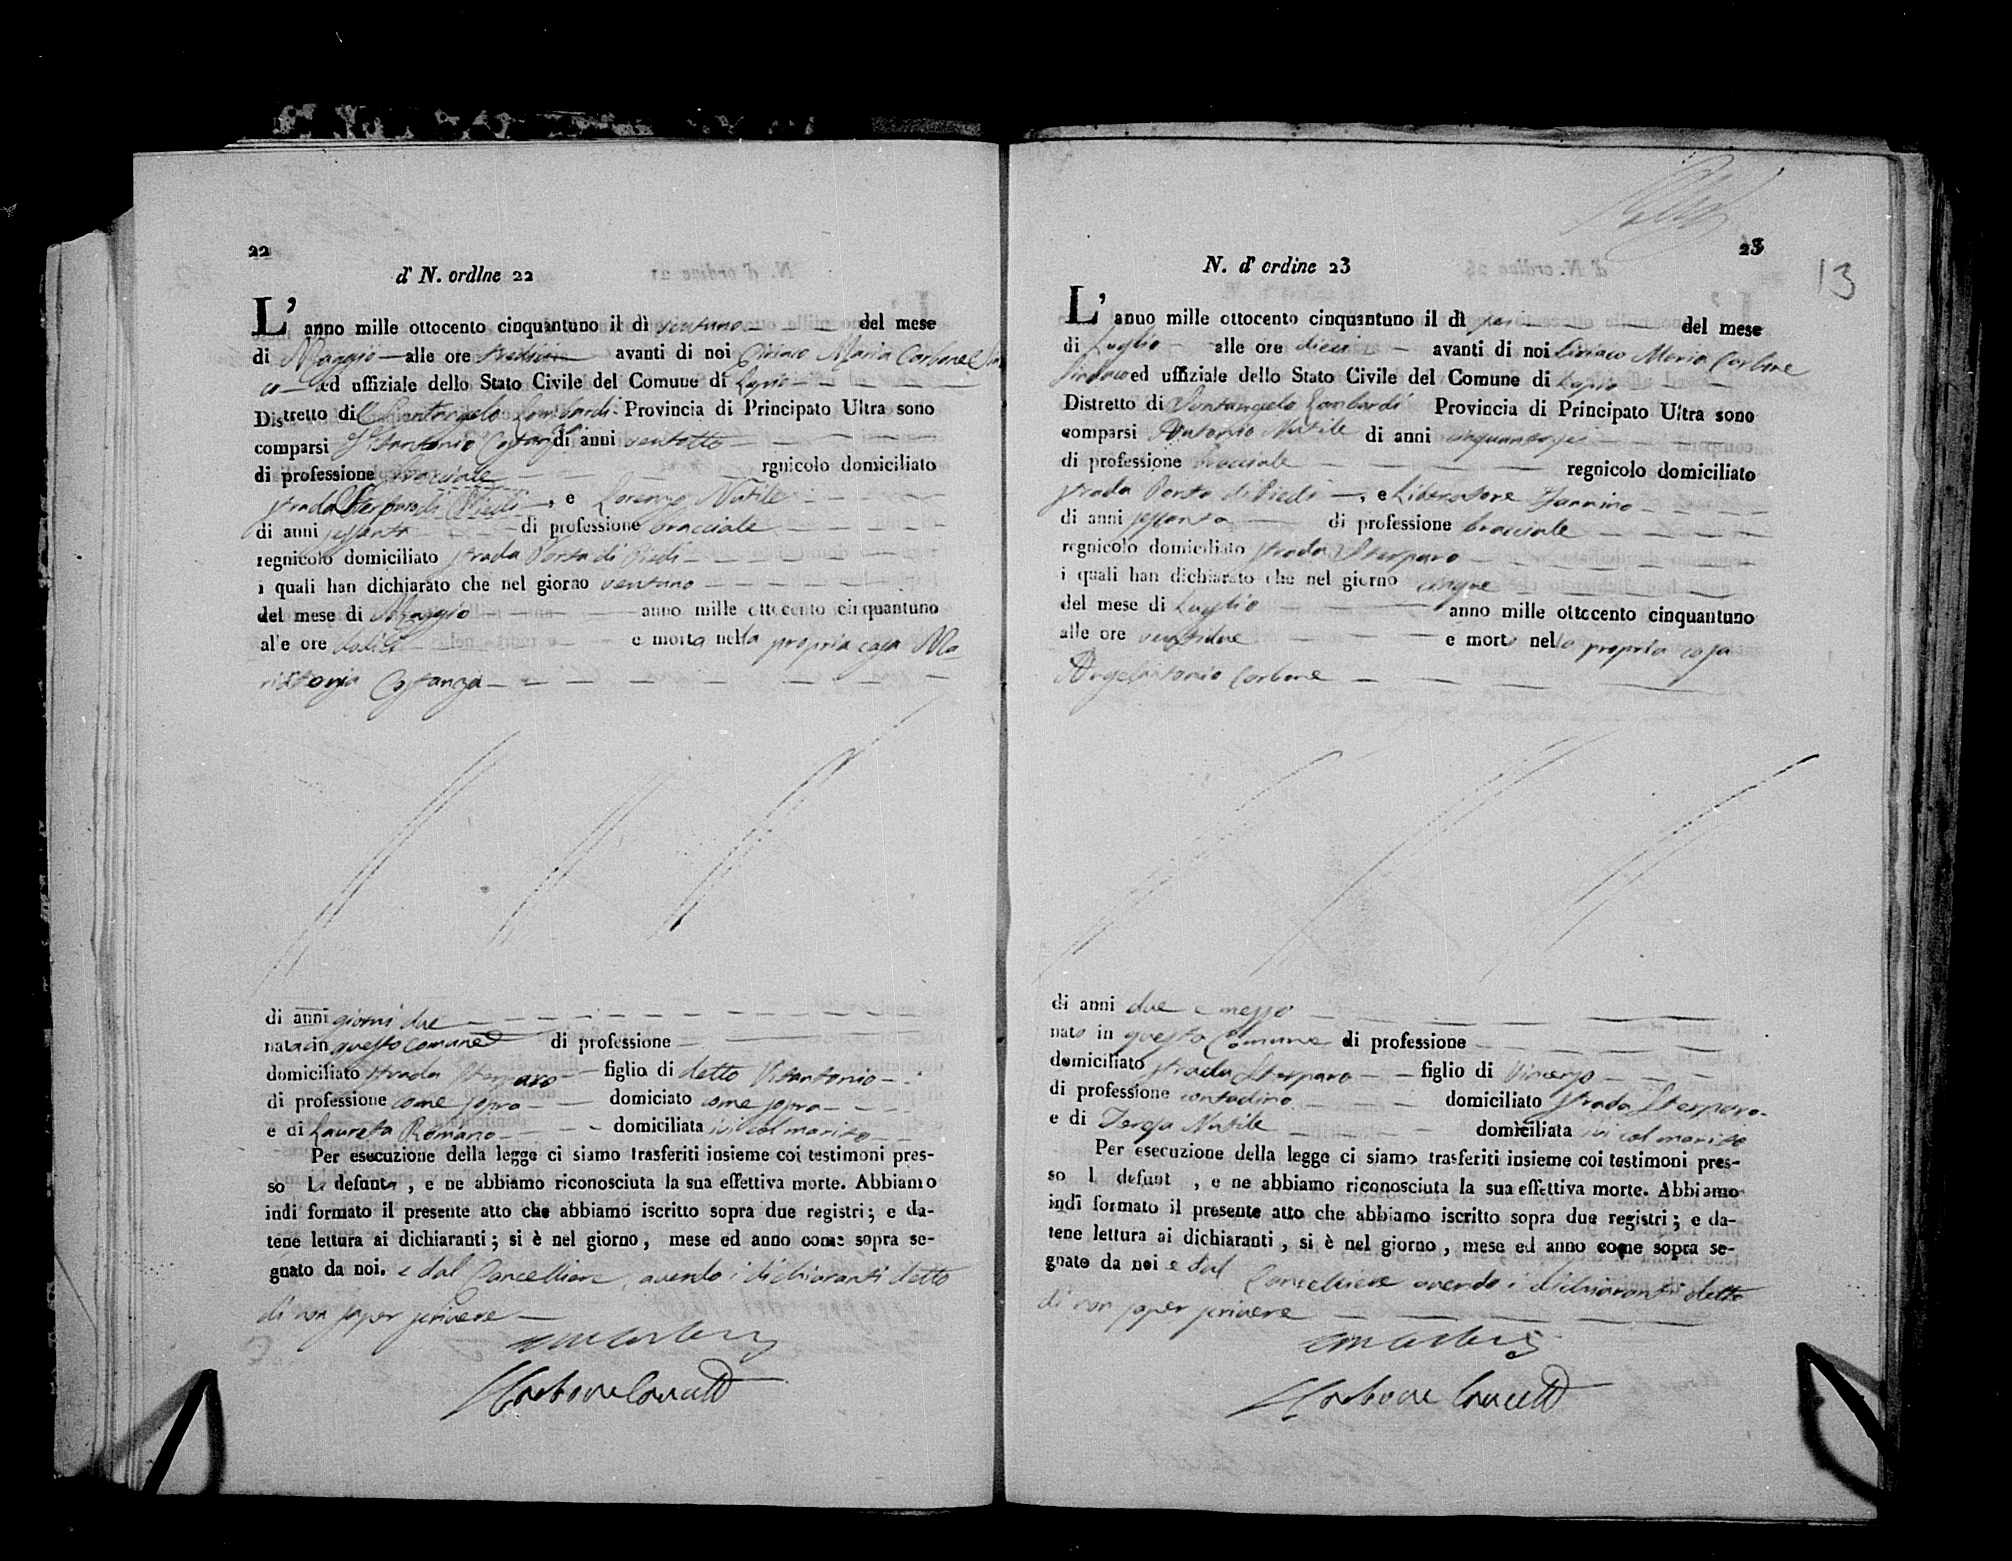 22
d' N. ordlne 22
L' anno mille ottocento cinquantuno il dì ventuno del mese
di Maggio alle ore tredici avanti di noi Ciriaco Maria Carbone Sinda
co ed uffiziale dello Stato Civile del Comune di
Distretto di Santangelo Lombardi Provincia di Principato Ultra sono
comparsi Vitantonio Costanza di anni ventotto
di professione bracciale rgnicolo domiciliato
strada , e Lorenzo Natile
di anni sessanta di professione bracciale
regnicolo domiciliato strada Porta di Piedi
i quali han dichiarato che nel giorno ventuno
del mese di Maggio anno mille ottocento cinquantuno
alle ore dodici e morta nella propria casa Ma
riantonia Costanza
di anni giorni due
nata in questo Comune di professione
domiciliato strada Sterparo figlio di detto Vitantonio
di professione come sopra domiciato come sopra
e di Laureta Romano domiciliata ivi col marito
Per esecuzione della legge ci siamo trasferiti insieme coi testimoni pres-
so la defunta , e ne abbiamo riconosciuta la sua effettiva morte. Abbiamo
indi formato il presente atto che abbiamo iscritto sopra due registri ; e da-
tene lettura ai dichiaranti ; si è nel giorno , mese ed anno come sopra se-
gnato da noi. e dal Cancelliere, avendo i dichiaranti detto
di non saper scrivere
Carbone Cancell
23
13
N. d' ordine 23
L' anno mille ottocento cinquantuno il dì sei del mese
di Luglio alle ore dieci avanti di noi Ciriaco Maria Carbone
Sindaco ed uffiziale dello Stato Civile del Comune di
Distretto di Santangelo Lombardi Provincia di Principato Ultra sono
comparsi Antonio Natile di anni cinquantasei
di professione bracciale regnicolo domiciliato
strada Porta di Piedi , e Liberatore Iannino
di anni sessanta di professione bracciale
regnicolo domiciliato strada Sterparo
i quali han dichiarato che nel giorno cinque
del mese di Luglio anno mille ottocento cinquantuno
alle ore ventidue e morto nella propria casa
Angelantonio Carbone
di anni due e mezzo
nato in questo Comune di professione
domiciliato strada Sterparo figlio di Vincenzo
di professione contadino domiciliato strada Sterparo
e di Teresa Natile domiciliata ivi col marito
Per esecuzione della legge ci siamo trasferiti insieme coi testimoni pres-
so l defunt , e ne abbiamo riconosciuta la sua effettiva morte. Abbiamo
indi formato il presente atto che abbiamo iscritto sopra due registri ; e da-
tene lettura ai dichiaranti , si è nel giorno , mese ed anno come sopra se-
gnato da noi e dal Cancelliere avendo i dichiaranti detto
di non saper scrivere
Carbone Cancell